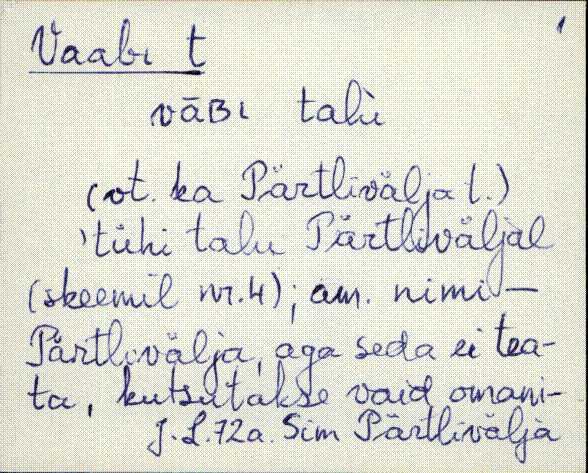 1
Vaabi t
vāBi talù
(vt. ka Pärtlivälja t.)
'tühi talu Pärtliväljal
(skeemil nr. 4); am. nimi -
Pärtlivälja, aga seda ei tea-
ta, kutsutakse vaid omani-
J. L. 72a. Sim Pärtlivälja